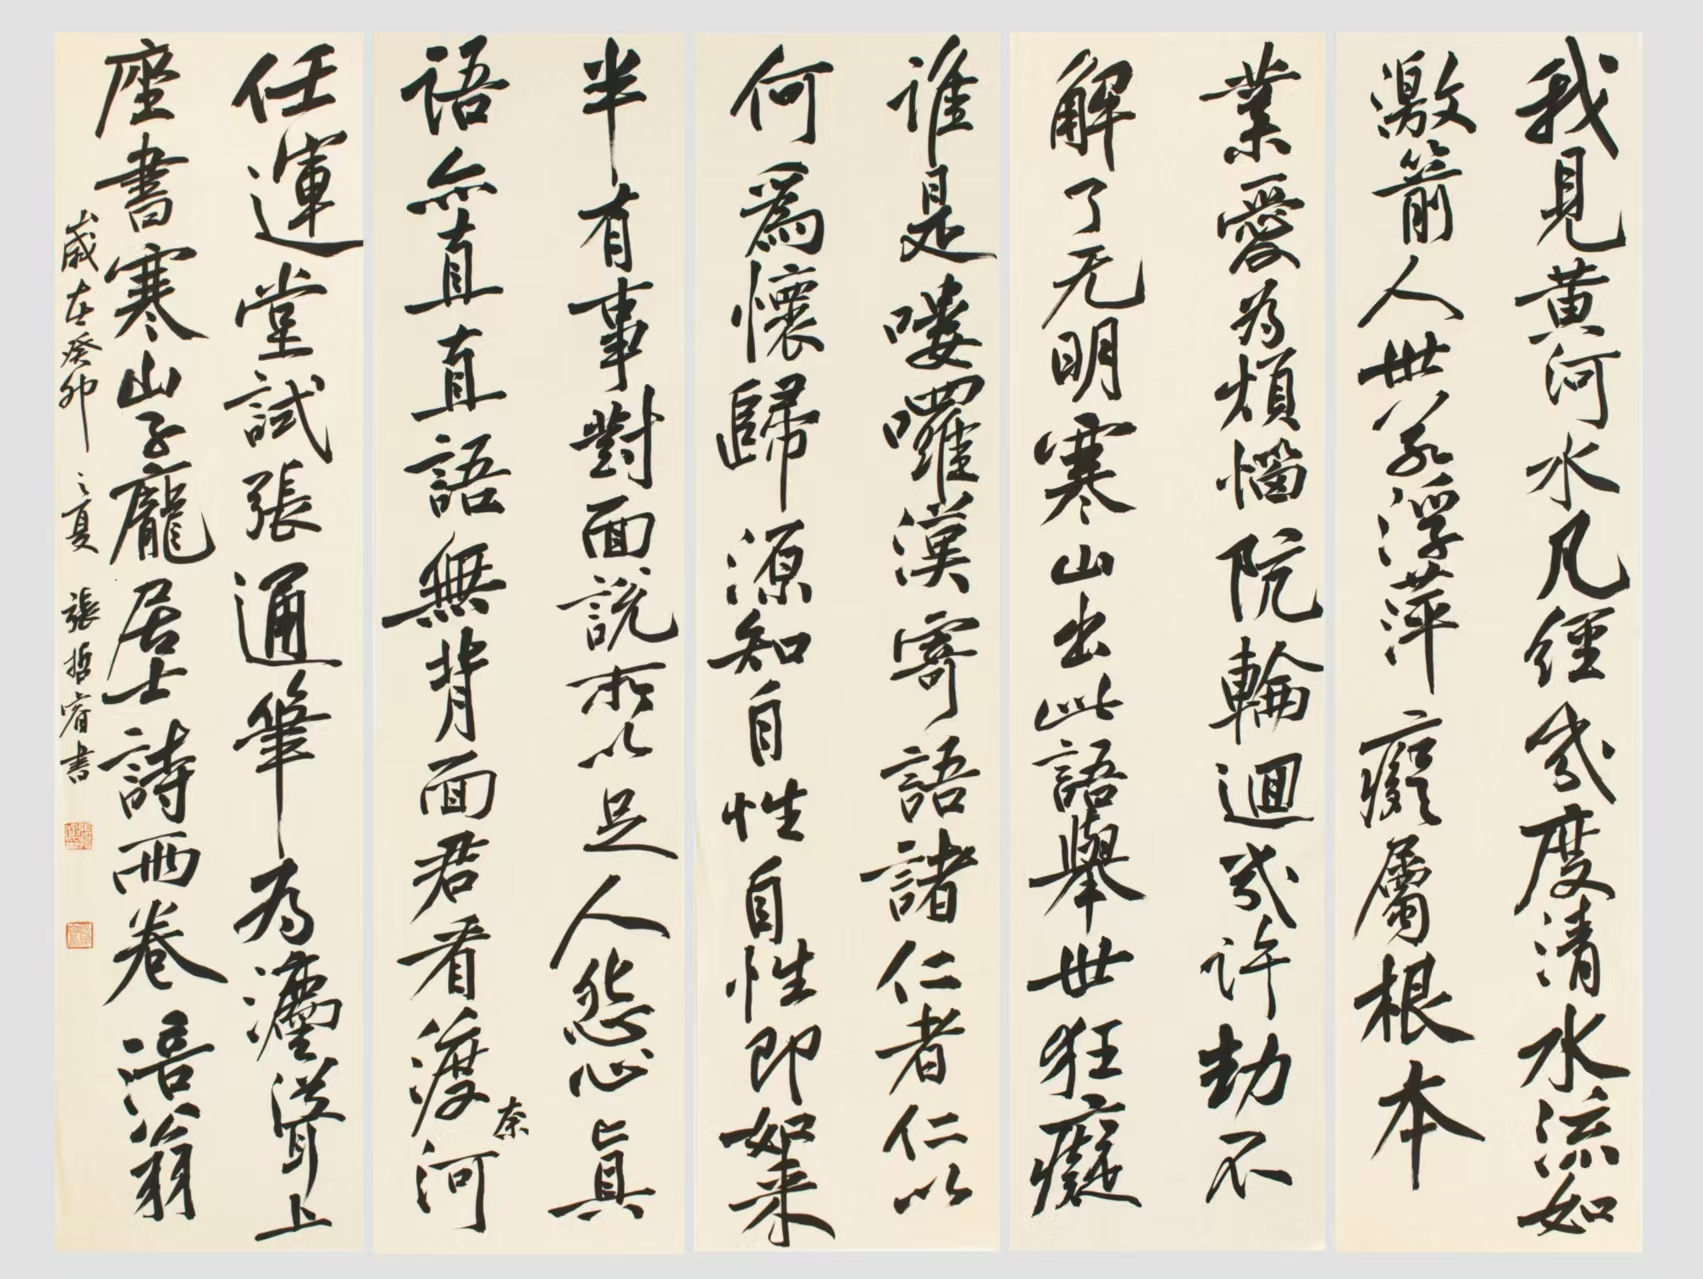 我見黄河水凡經幾度清水流如
激箭人世若浮萍癡屬根本
業愛為煩惱阬輪迴幾許劫不
解了无明寒山出此語舉世狂癡
誰是嘍囉漢寄語諸仁者仁以
何爲懷歸源知自性自性即如来
半有事對面説所以足人怨心真
語無直直語無背面君看渡奈河
任運堂試張通筆為灋聳上
座書寒山子龐居士詩兩卷涪翁
歲在癸卯之夏張哲睿書